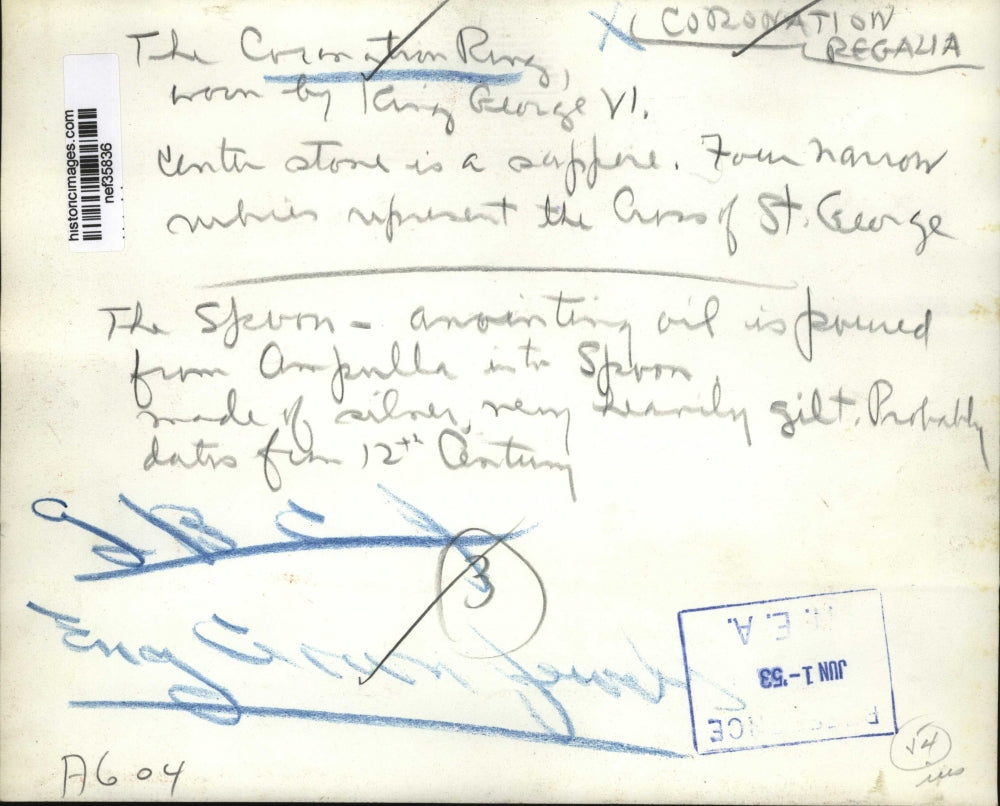 CORONATION
REGALIA
The Coronation Ring,
worn by King George VI.
Center stone is a sappire. Four narrow
rubies represent the Cross of St. George
The Spoon - anointing oil is poured
from Ampulla into Spoon,
made of silver, very heavily gilt. Probably
dates from 12th Century
3
Eng Crown Jewels
N.E.A.
JUN 1-'53
A604
historicimages.com
nef35836